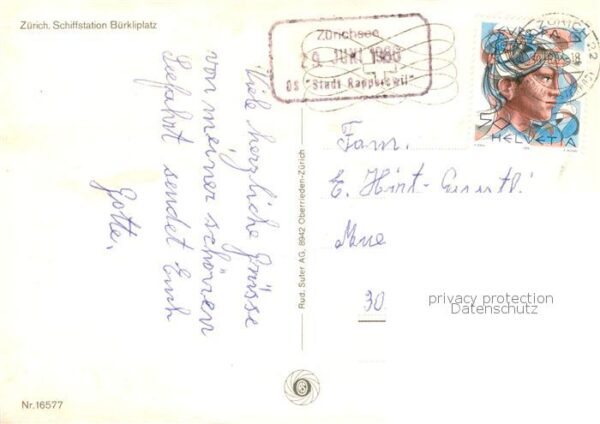 Zürich, Schiffstation Bürkliplatz
Viele herzliche Grüsse
von meiner schönen
Seefahrt sendet Euch
Gotte.
Zürichsee
9. JUNI 1986
DS "Stadt Rapperswil"
ZÜRICH
22
HELVETIA
50
HELVETIA
Fam.
E. Hirt-
30
Rud. Suter AG, 8942 Oberrieden-Zürich
Nr. 16577
privacy protection
Datenschutz